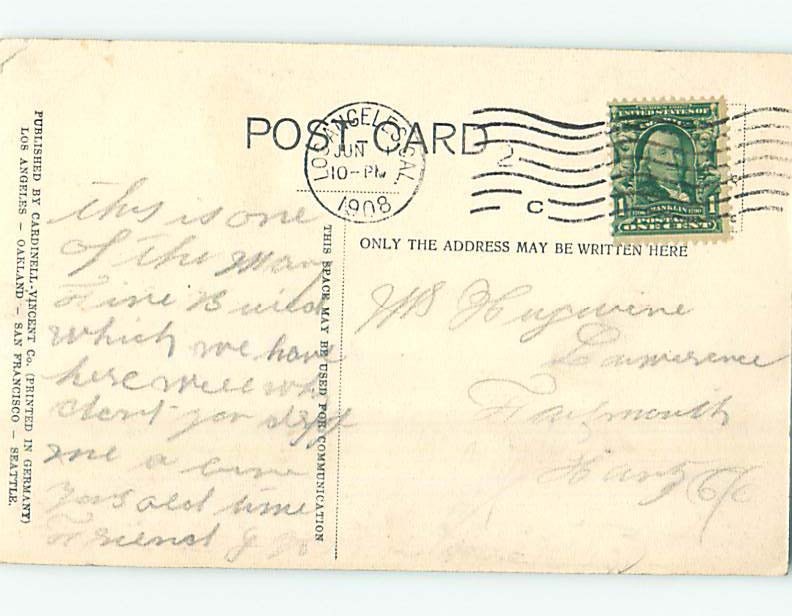 POST CARD
LOS ANGELES, CAL.
JUN
10-PM
1908
2
C
UNITED STATES OF
FRANKLIN
1 1
POSTAGE
ONE CENT
THIS SPACE MAY BE USED FOR COMMUNICATION
ONLY THE ADDRESS MAY BE WRITTEN HERE
PUBLISHED BY CARDINELL-VINCENT CO. (PRINTED IN GERMANY)
LOS ANGELES – OAKLAND – SAN FRANCISCO – SEATTLE.
this is one
of the many
Fine Build
which we have
here well why
dont you
me a
old time
Friend
Lawrence